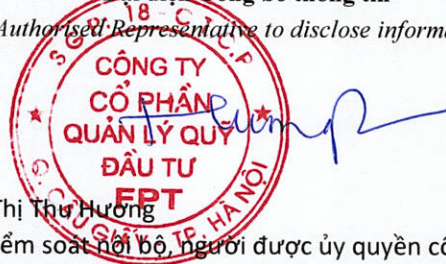 Authorised Representative to disclose informa
CÔNG TY
CỔ PHẦN
QUẢN LÝ QUỸ
ĐẦU TƯ
FPT
Thị Thu Hương
ểm soát nội bộ, người được ủy quyền cô